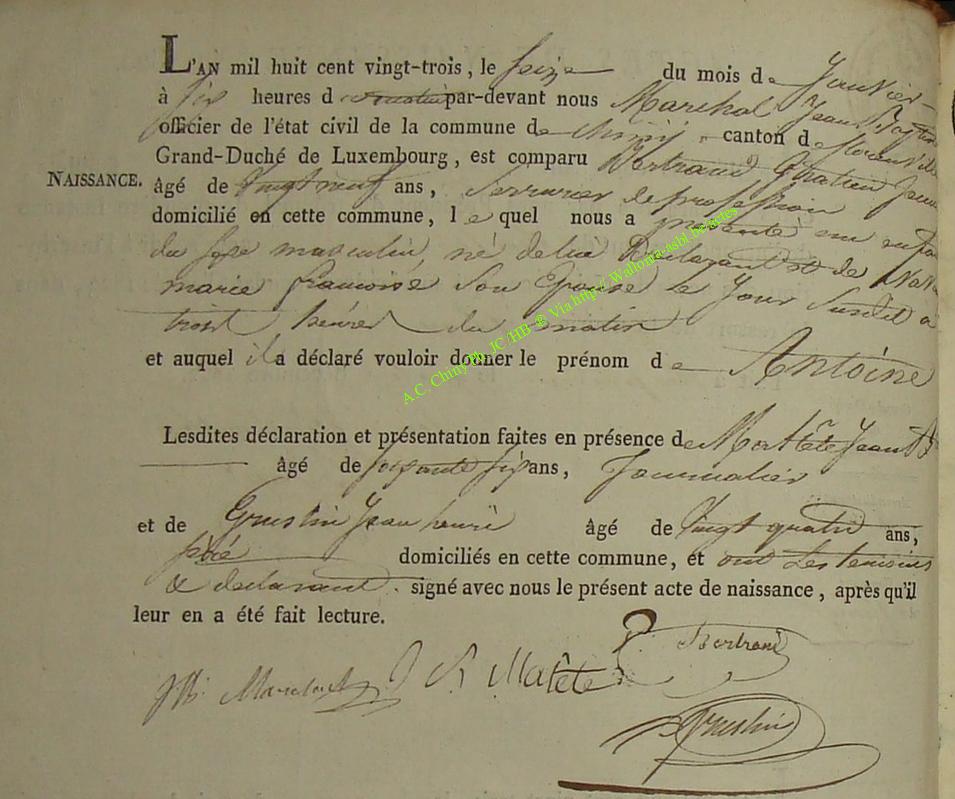 L'AN mil huit cent vingt-trois, le seize du mois de Janvier
à dix heures d u matin par-devant nous Marchal Jean Bapt
officier de l'état civil de la commune de Chiny, canton de florenville
Grand-Duché de Luxembourg, est comparu Bertrand Gratien Jean
NAISSANCE.
âgé de Vingt neuf ans, Serrurier de profession
domicilié en cette commune, l e quel nous a présenté un enfan
du sexe masculin, né de lui Déclarant et de
marie francoise Son Epouse le Jour Susdit à
trois heures du matin
et auquel il a déclaré vouloir donner le prénom d e Antoine
Lesdites déclaration et présentation faites en présence de Jean
âgé de soixante six ans, Journalier
et de Grustin Jean henri âgé de Vingt quatre ans,
domiciliés en cette commune, et ont Les temoins
& declarant. signé avec nous le présent acte de naissance, après qu'il
leur en a été fait lecture.
Bertrand
Grustin
A.C. Chiny Ph. JC /HB © Via http:// Wallonia-asbl.be/actes